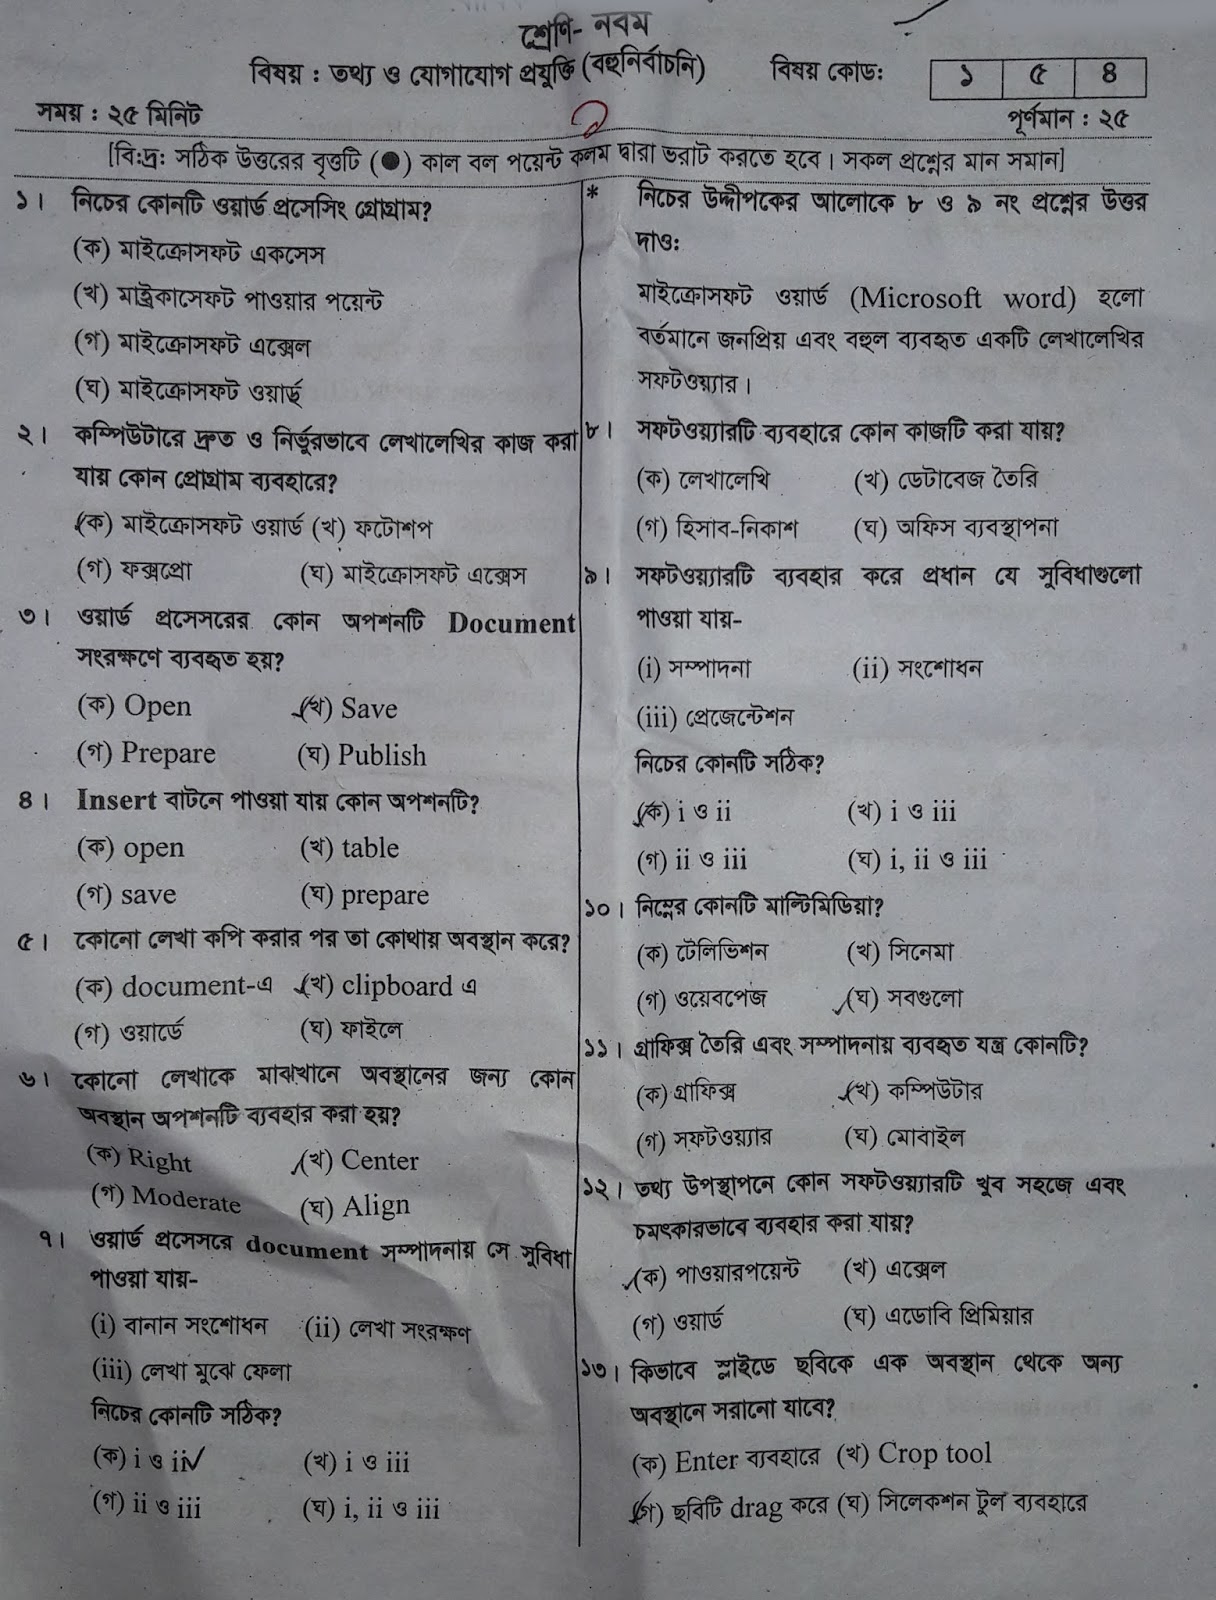 শ্রেণি- নবম
বিষয় : তথ্য ও যোগাযোগ প্রযুক্তি (বহুনির্বাচনি) বিষয় কোড: ১ ৫ ৪
সময় : ২৫ মিনিট পূর্ণমান : ২৫
[বি:দ্র: সঠিক উত্তরের বৃত্তটি (●) কাল বল পয়েন্ট কলম দ্বারা ভরাট করতে হবে। সকল প্রশ্নের মান সমান]
১। নিচের কোনটি ওয়ার্ড প্রসেসিং প্রোগ্রাম?
(ক) মাইক্রোসফট একসেস
(খ) মাইক্রকাসেফট পাওয়ার পয়েন্ট
(গ) মাইক্রোসফট এক্সেল
(ঘ) মাইক্রোসফট ওয়ার্ড
২। কম্পিউটারে দ্রুত ও নির্ভুরভাবে লেখালেখির কাজ করা
যায় কোন প্রোগ্রাম ব্যবহারে?
(ক) মাইক্রোসফট ওয়ার্ড (খ) ফটোশপ
(গ) ফক্সপ্রো (ঘ) মাইক্রোসফট এক্সেস
৩। ওয়ার্ড প্রসেসরের কোন অপশনটি Document
সংরক্ষণে ব্যবহৃত হয়?
(ক) Open (খ) Save
(গ) Prepare (ঘ) Publish
৪। Insert বাটনে পাওয়া যায় কোন অপশনটি?
(ক) open (খ) table
(গ) save (ঘ) prepare
৫। কোনো লেখা কপি করার পর তা কোথায় অবস্থান করে?
(ক) document-এ (খ) clipboard এ
(গ) ওয়ার্ডে (ঘ) ফাইলে
৬। কোনো লেখাকে মাঝখানে অবস্থানের জন্য কোন
অবস্থান অপশনটি ব্যবহার করা হয়?
(ক) Right (খ) Center
(গ) Moderate (ঘ) Align
৭। ওয়ার্ড প্রসেসরে document সম্পাদনায় সে সুবিধা
পাওয়া যায়-
(i) বানান সংশোধন (ii) লেখা সংরক্ষণ
(iii) লেখা মুঝে ফেলা
নিচের কোনটি সঠিক?
(ক) i ও ii (খ) i ও iii
(গ) ii ও iii (ঘ) i, ii ও iii
* নিচের উদ্দীপকের আলোকে ৮ ও ৯ নং প্রশ্নের উত্তর
দাও:
মাইক্রোসফট ওয়ার্ড (Microsoft word) হলো
বর্তমানে জনপ্রিয় এবং বহুল ব্যবহৃত একটি লেখালেখির
সফটওয়্যার।
৮। সফটওয়্যারটি ব্যবহারে কোন কাজটি করা যায়?
(ক) লেখালেখি (খ) ডেটাবেজ তৈরি
(গ) হিসাব-নিকাশ (ঘ) অফিস ব্যবস্থাপনা
৯। সফটওয়্যারটি ব্যবহার করে প্রধান যে সুবিধাগুলো
পাওয়া যায়-
(i) সম্পাদনা (ii) সংশোধন
(iii) প্রেজেন্টেশন
নিচের কোনটি সঠিক?
(ক) i ও ii (খ) i ও iii
(গ) ii ও iii (ঘ) i, ii ও iii
১০। নিম্নের কোনটি মাল্টিমিডিয়া?
(ক) টেলিভিশন (খ) সিনেমা
(গ) ওয়েবপেজ (ঘ) সবগুলো
১১। গ্রাফিক্স তৈরি এবং সম্পাদনায় ব্যবহৃত যন্ত্র কোনটি?
(ক) গ্রাফিক্স (খ) কম্পিউটার
(গ) সফটওয়্যার (ঘ) মোবাইল
১২। তথ্য উপস্থাপনে কোন সফটওয়্যারটি খুব সহজে এবং
চমৎকারভাবে ব্যবহার করা যায়?
(ক) পাওয়ারপয়েন্ট (খ) এক্সেল
(গ) ওয়ার্ড (ঘ) এডোবি প্রিমিয়ার
১৩। কিভাবে স্লাইডে ছবিকে এক অবস্থান থেকে অন্য
অবস্থানে সরানো যাবে?
(ক) Enter ব্যবহারে (খ) Crop tool
(গ) ছবিটি drag করে (ঘ) সিলেকশন টুল ব্যবহারে